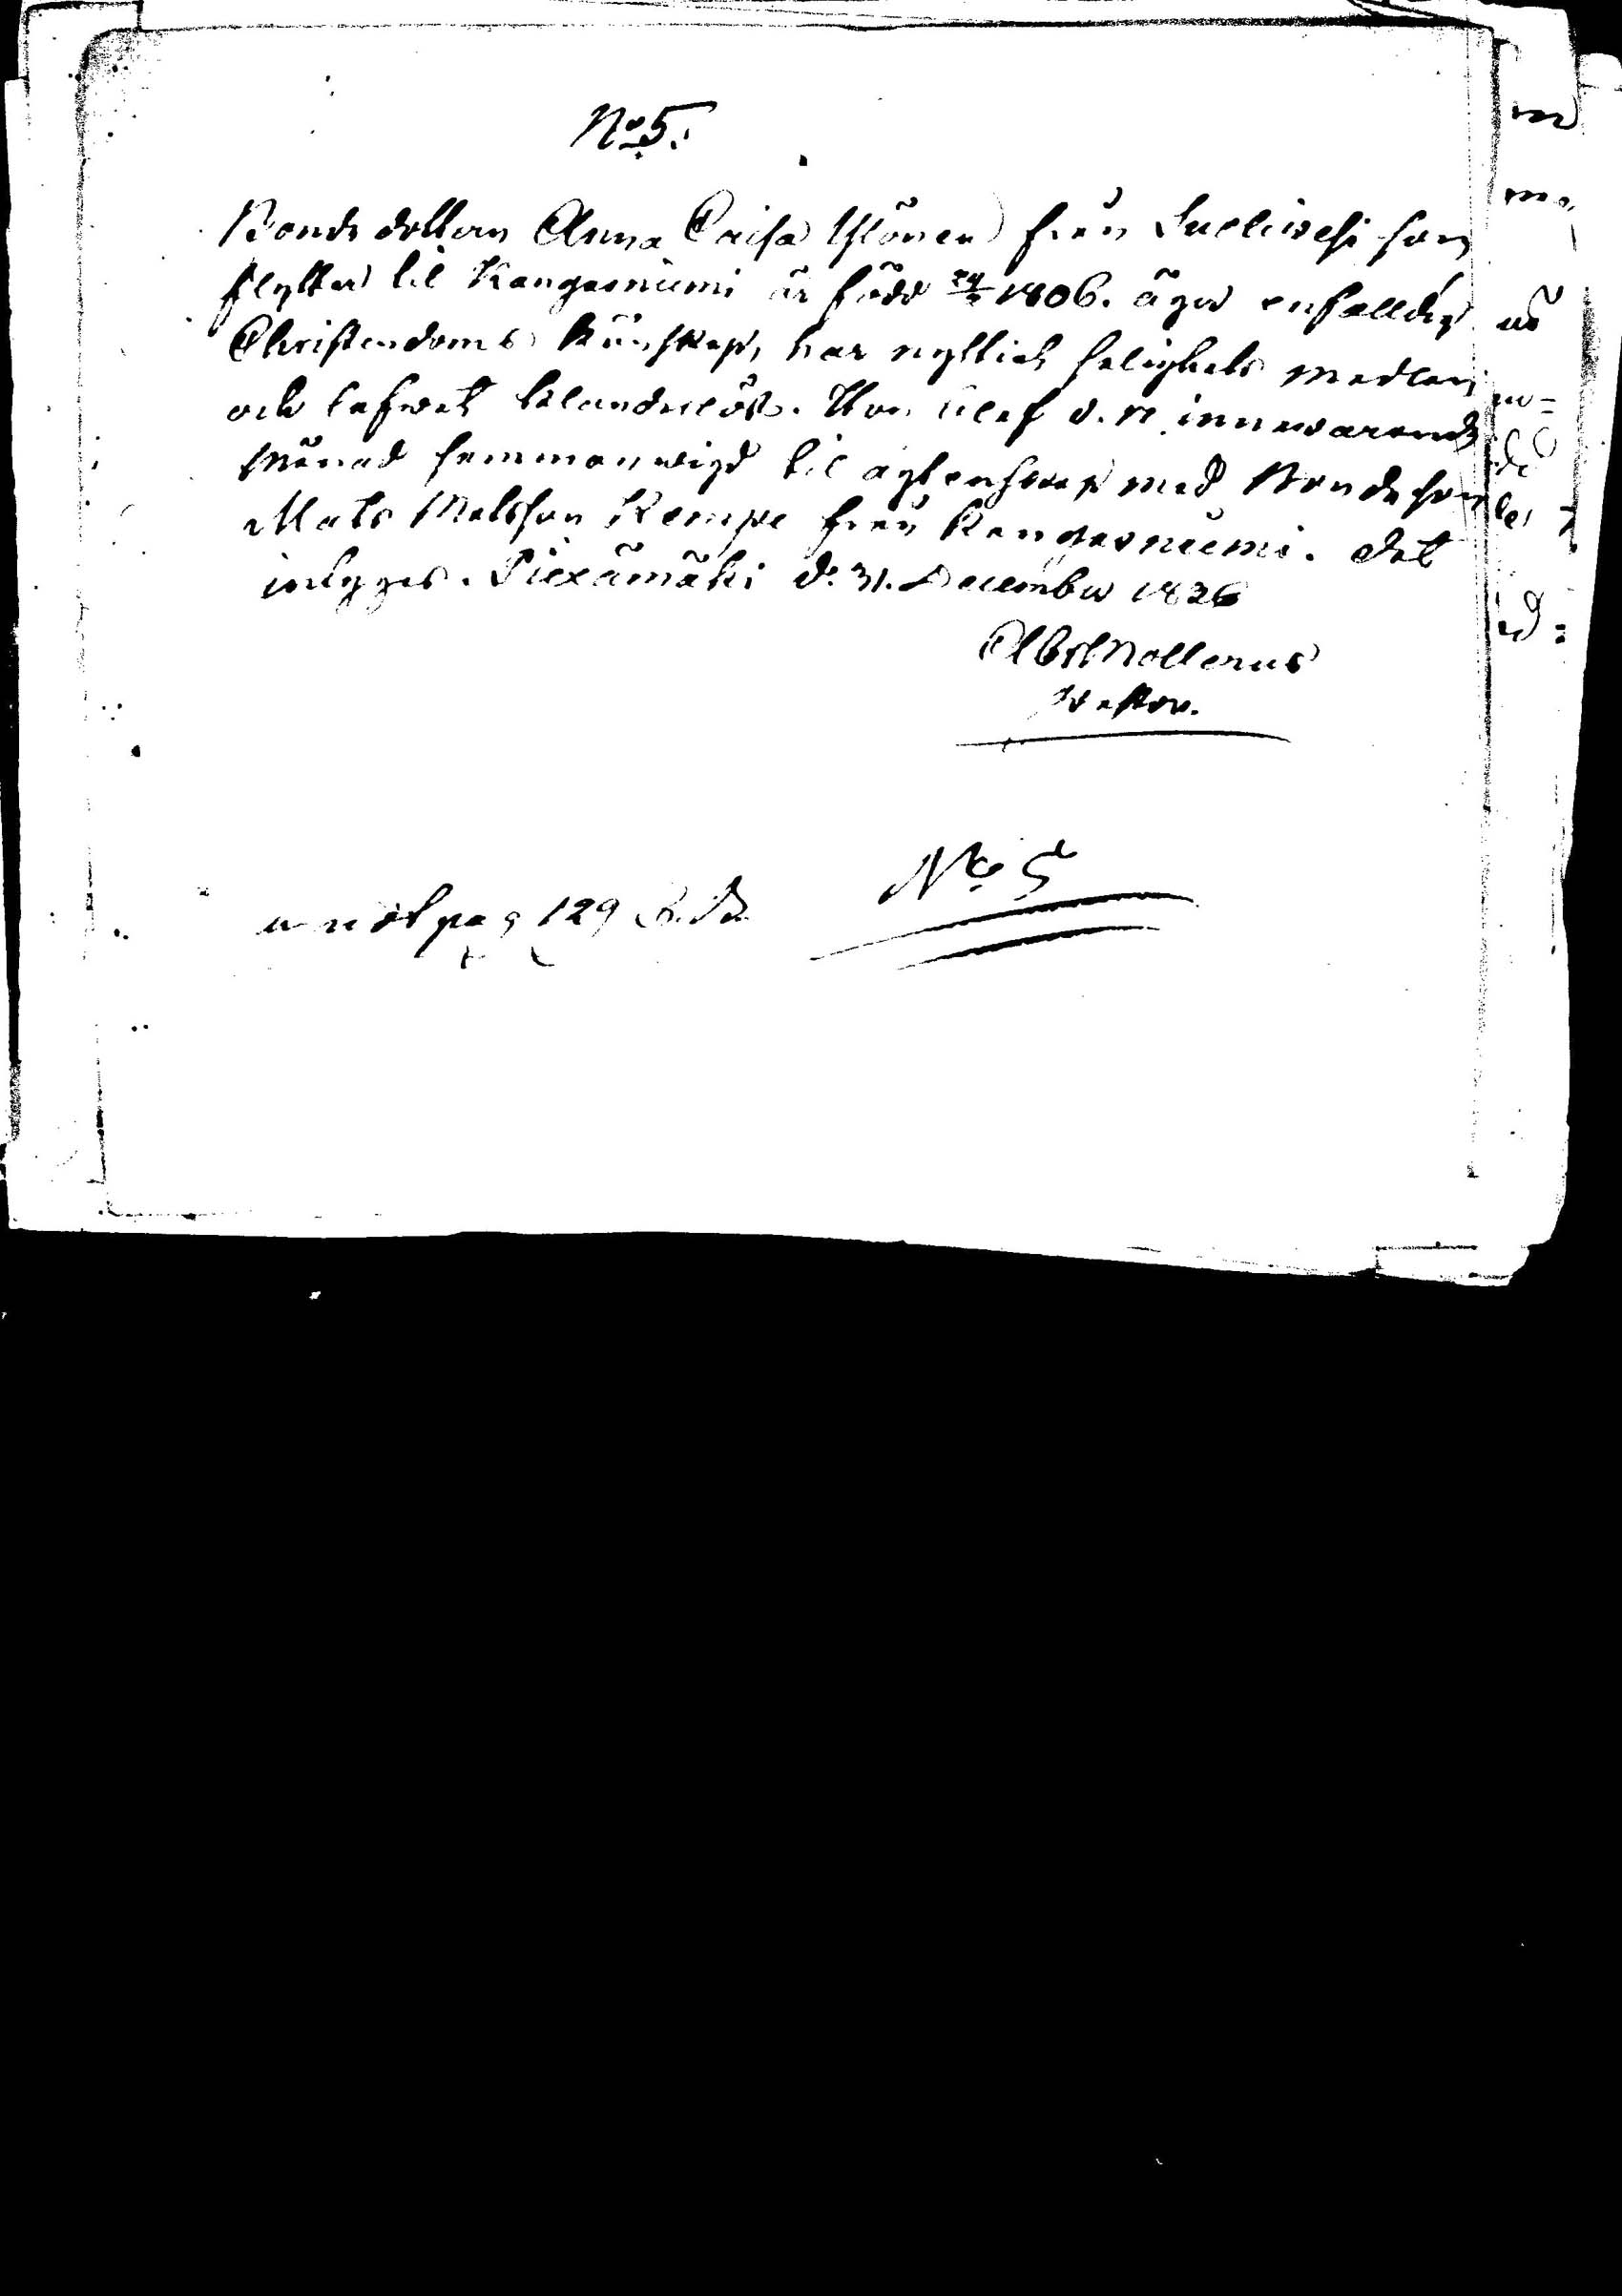 No 5.
Bonde dottern Anna Caisa Ylönen från Suoliwesi som
flyttar til Kangasniemi är född 1806. äger enfalldig
Christendoms kunskap, har nyttjat salighets medlen
och lefwat klanderlöst. Hon blef d. innewarande
Månad sammanwigd til ägtenskap med Bondeson
Mats Matsson Kempe från Kangasniemi. det
intygges. Piexämäki d. 31. December 1826
Molerus
Pastor.
No 5
pag 129